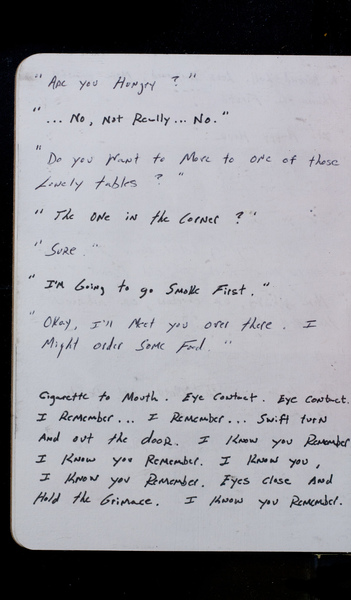 "Are you Hungry ?"
"... No, Not Really... No."
"Do you Want to Move to one of those
Lonely tables ? "
" The One in the Corner ?"
"Sure."
" I'm Going to go Smoke First."
"Okay, I'll Meet you over there. I
Might order Some Food. "
Cigarette to Mouth. Eye Contact. Eye Contact.
I Remember... I Remember... Swift turn
And out the door. I Know you Remember
I Know you Remember. I Know you,
I Know you Remember. Eyes close And
Hold the Grimace. I Know you Remember.